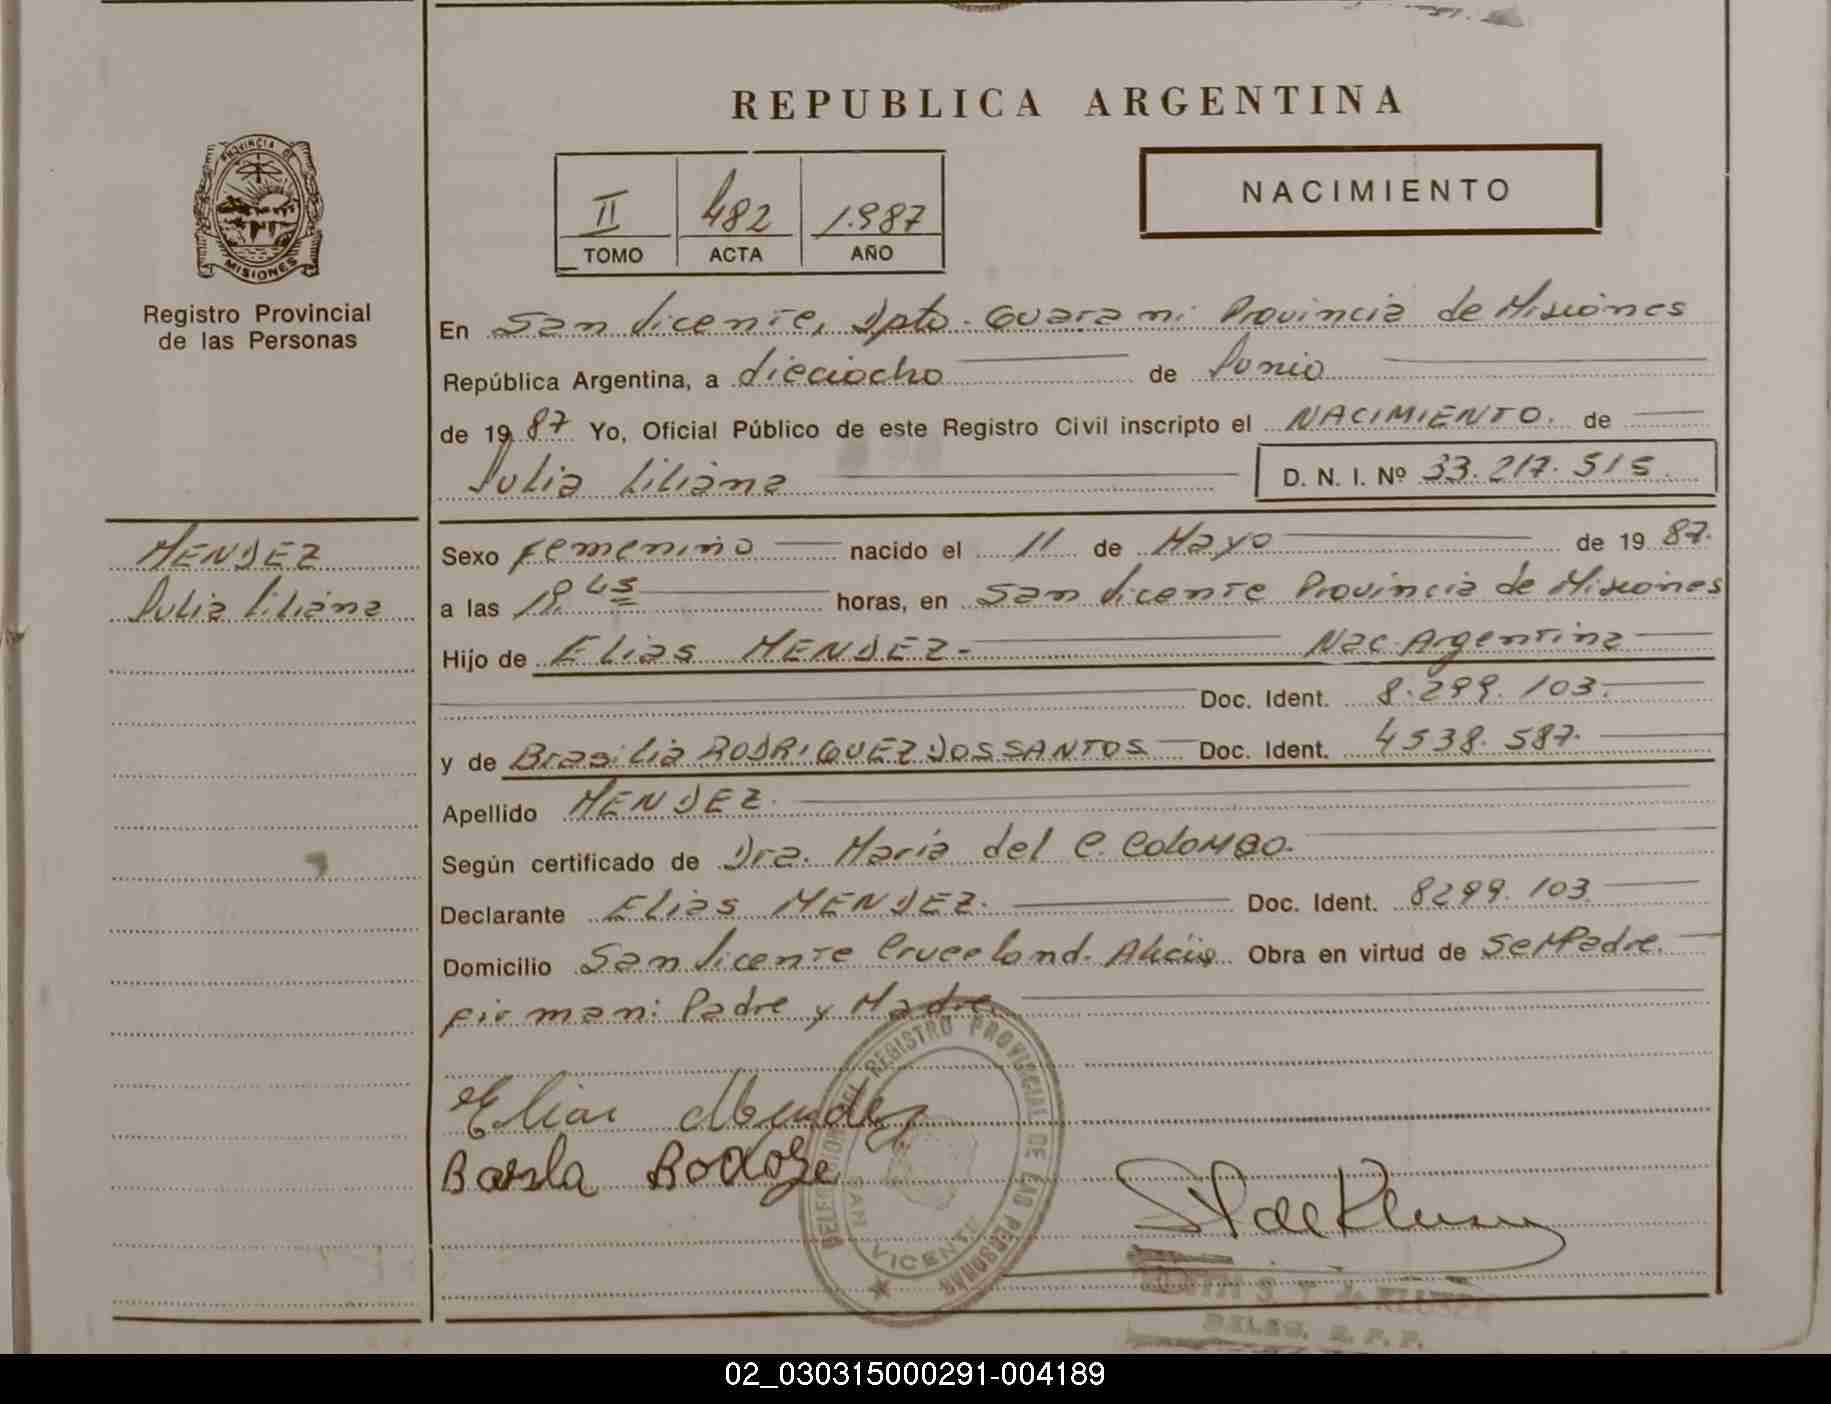 REPUBLICA ARGENTINA
PROVINCIA DE
MISIONES
Registro Provincial
de las Personas
II 482 1.987
TOMO ACTA AÑO
NACIMIENTO
En San Vicente, Dpto. Guarani Provincia de Misiones
República Argentina, a dieciocho de Junio
de 1987 Yo, Oficial Público de este Registro Civil inscripto el NACIMIENTO. de
Julia Liliana D. N. I. Nº 33.217.515
MENDEZ
Julia Liliana
Sexo Femenino nacido el 11 de Mayo de 1987.
a las 19,45 horas, en San Vicente Provincia de Misiones
Hijo de Elias MENDEZ.- Nac. Argentina
Doc. Ident. 8.299.103.
y de Brasilia RODRIGUEZ DOS SANTOS Doc. Ident. 4538.587.
Apellido MENDEZ.
Según certificado de Dra. Maria del C. COLOMBO.
Declarante Elias MENDEZ. Doc. Ident. 8299.103
Domicilio San Vicente Alicia Obra en virtud de Ser Padre.
Firman: Padre y Madre
Elias Mendez
DELEGACION DEL REGISTRO PROVINCIAL DE LAS PERSONAS
SAN VICENTE
DELEG. R. P. P.
02_030315000291-004189